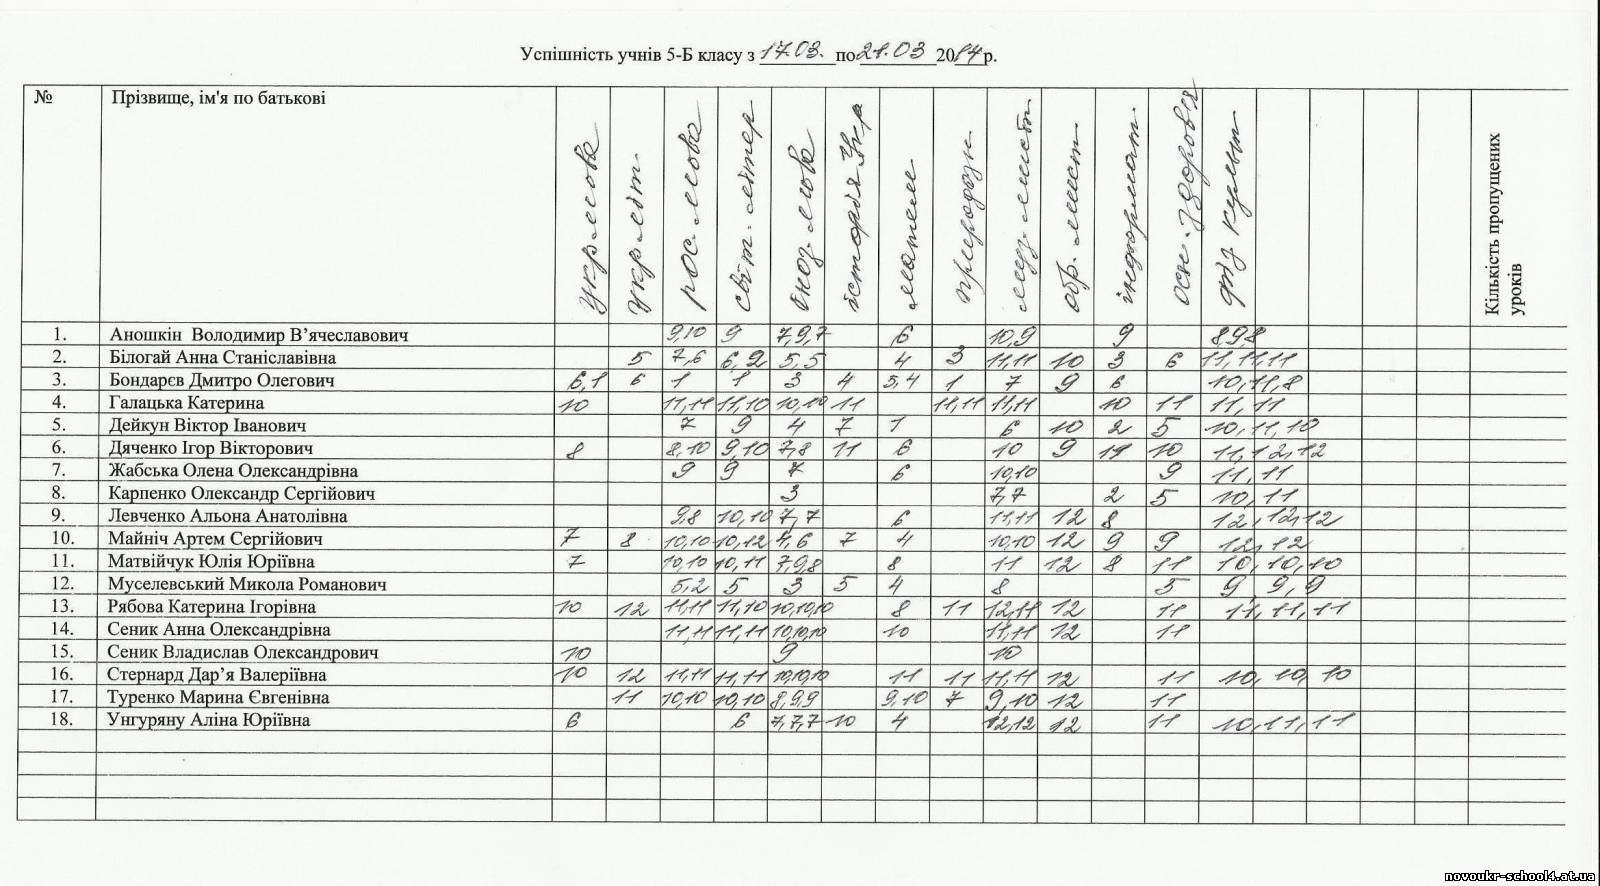 Успішність учнів 5-Б класу з 17.03. по 21.03 2014р.
№ Прізвище, ім'я по батькові укр мова укр літ. рос. мова світ. літер іноз. мова історія Укр матем природозн муз. мист обр. мист. інформат. осн. здоров'я фіз культ. Кількість пропущених уроків
1. Аношкін Володимир В’ячеславович 9,10 9 7,9,7 6 10,9 9 8,9,8
2. Білогай Анна Станіславівна 5 7,6 6,2 5,5 4 3 11,11 10 3 6 11,11,11
3. Бондарєв Дмитро Олегович 6,1 6 1 1 3 4 5,4 1 7 9 6 10,11,8
4. Галацька Катерина 10 11,11 11,10 10,10 11 11,11 11,11 10 11 11,11
5. Дейкун Віктор Іванович 7 9 4 7 1 6 10 2 5 10,11,10
6. Дяченко Ігор Вікторович 8 8,10 9,10 7,8 11 6 10 9 10 11,12,12
7. Жабська Олена Олександрівна 9 9 7 6 10,10 9 11,11
8. Карпенко Олександр Сергійович 3 7,7 2 5 10,11
9. Левченко Альона Анатолівна 9,8 10,10 7,7 6 11,11 12 8 12,12,12
10. Майніч Артем Сергійович 7 8 10,10 10,12 4,6 7 4 10,10 12 9 9 12,12
11. Матвійчук Юлія Юріївна 7 10,10 10,11 7,9,8 8 11 12 8 11 10,10,10
12. Муселевський Микола Романович 5,2 5 3 5 4 8 5 9,9,9
13. Рябова Катерина Ігорівна 10 12 11,11 11,10 10,10,10 8 11 12,11 12 11 11,11,11
14. Сеник Анна Олександрівна 11,11 11,11 10,10,10 10 11,11 12 11
15. Сеник Владислав Олександрович 10 9 10
16. Стернард Дар’я Валеріївна 10 12 11,11 11,11 10,10,10 11 11 11,11 12 11 10,10,10
17. Туренко Марина Євгенівна 11 10,10 10,10 8,9,9 9,10 7 9,10 12 11
18. Унгуряну Аліна Юріївна 6 6 7,7,7 10 4 12,12 12 11 10,11,11
novoukr-school4.at.ua